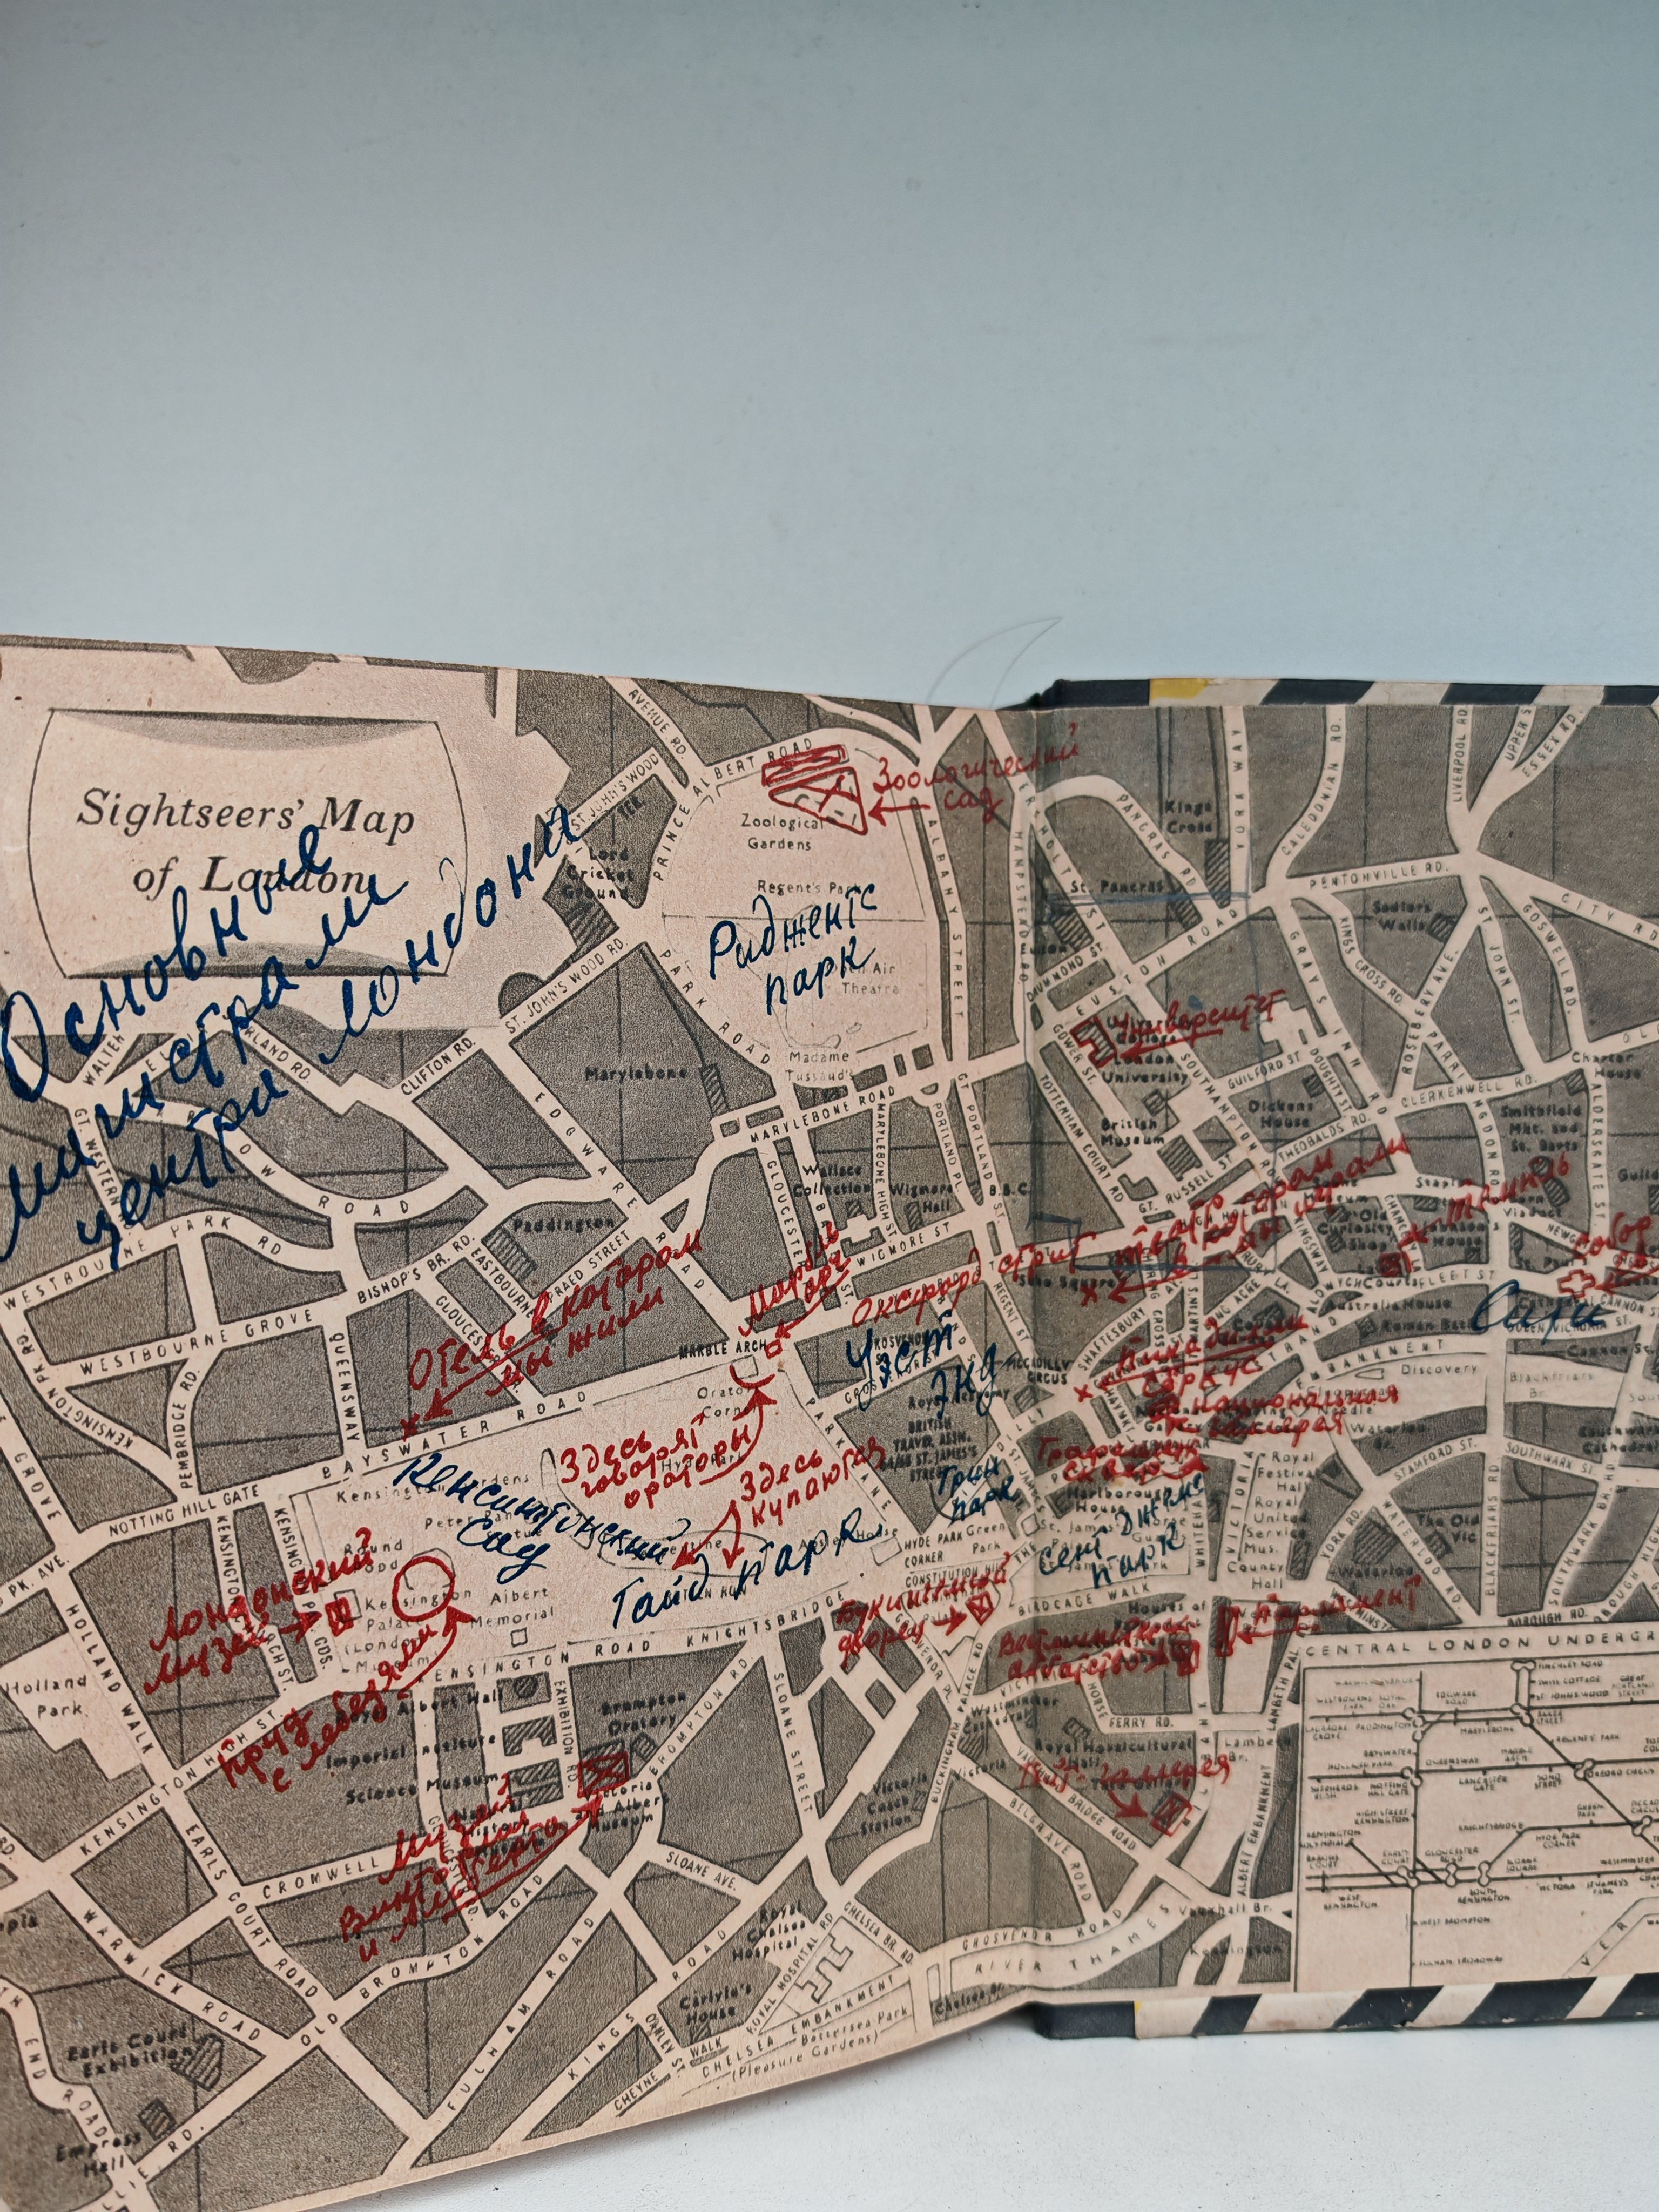 Sightseers' Map
of London
Основные
магистрали
центра Лондона
AVENUE RD.
ST. JOHN'S WOOD
TER.
PRINCE ALBERT ROAD
Зоологический
сад
Zoological
Gardens
Lord
Cricket
Ground
Regent's Park
Риджентс
парк
Air
Theatre
ALBANY STREET
PANCRAS RD.
Kings
Cross
YORK WAY
CALEDONIAN RD.
LIVERPOOL RD.
UPPER S
ESSEX RD.
St. Pancras
PENTONVILLE RD.
CITY RD
Sadlers
Wells
ST. JOHN ST.
GOSWELL RD.
KINGS CROSS RD.
ROSEBERY AVE.
GRAYS INN RD
EUSTON ROAD
DRUMMOND ST.
PARK ROAD
ST. JOHN'S WOOD RD.
CLIFTON RD.
Университет
London
University
GOWER ST.
SOUTHAMPTON
GUILFORD ST
DOUGHTY ST.
Dickens
House
THEOBALDS RD.
CLERKENWELL RD.
Charter
House
Smithfield
Mkt. and
St. Barts
ALDERSGATE ST.
British
Museum
TOTTENHAM COURT RD
GT. RUSSELL ST.
Madame
Tussaud's
Marylebone
MARYLEBONE ROAD
MARYLEBONE HIGH ST
PORTLAND PL.
GT. PORTLAND ST.
B.B.C.
Wallace
Collection
Wigmore
Hall
WIGMORE ST
GLOUCESTER
EDGWARE ROAD
GT. WESTERN
WESTBOURNE PARK RD
BISHOP'S BR. RD.
EASTBOURNE
Paddington
PRAED STREET
WESTBOURNE GROVE
QUEENSWAY
KENSINGTON PK RD.
PEMBRIDGE RD.
Отель в котором
мы жили
Марбль
арч
MARBLE ARCH
Оксфорд стрит
театр
в котором
мы играли
Темпль
Собор
Сити
Soho Square
REGENT ST.
SHAFTESBURY
ALDWYCH
FLEET ST
Australia House
Roman Bath
CANNON ST.
QUEEN VICTORIA ST.
EMBANKMENT
Discovery
Blackfriars
Br.
Уэст
энд
PICCADILLY
CIRCUS
Пикадилли
сёркус
Национальная
галерея
Трафальгар
сквер
BRITISH
TRAVEL ASSN.
64/65 ST. JAMES'S
STREET
BAYSWATER ROAD
NOTTING HILL GATE
PARK LANE
Здесь
говорят
ораторы
Здесь
купаются
Кенсингтонский
сад
Гайд парк
Грин
парк
Сент Джемс
парк
Лондонский
музей
Round
Pond
Albert
Memorial
HYDE PARK
CORNER
Green
Park
Marlborough
House
WHITEHALL
Royal
Festival
Hall
Royal
United
Service
Mus.
County
Hall
STAMFORD ST.
SOUTHWARK ST
YORK RD.
WATERLOO RD.
The Old
Vic
BLACKFRIARS RD
SOUTHWARK BR. RD
Waterloo
BOROUGH RD.
BIRDCAGE WALK
Букингамский
дворец
Вестминстерское
аббатство
Парламент
KENSINGTON ROAD
KNIGHTSBRIDGE
HOLLAND WALK
Holland
Park
KENSINGTON HIGH ST.
Пруд
с лебедями
Royal Albert Hall
Imperial Institute
Science Museum
EXHIBITION RD.
Brompton
Oratory
BROMPTON RD
Victoria
and Albert
Museum
Музей
Виктории
и Альберта
SLOANE STREET
SLOANE AVE.
BUCKINGHAM PALACE RD
Westminster
Cathedral
Victoria
Victoria
Coach
Station
HORSE
FERRY RD.
Royal Horticultural
Hall
Тейт-галлерея
VAUXHALL BRIDGE ROAD
BELGRAVE ROAD
Lambeth
Br.
LAMBETH PAL
ALBERT EMBANKMENT
Vauxhall Br.
GROSVENOR ROAD
RIVER THAMES
CROMWELL
EARLS COURT ROAD
WARWICK ROAD
OLD BROMPTON ROAD
FULHAM ROAD
KINGS ROAD
OAKLEY ST.
Royal
Chelsea
Hospital
ROYAL HOSPITAL RD
CHELSEA BR. RD.
Carlyle's
House
CHEYNE WALK
CHELSEA EMBANKMENT
Battersea Park
(Pleasure Gardens)
Chelsea Br.
Earls Court
Exhibition
Empress
Hall
CENTRAL LONDON UNDERGR
FINCHLEY ROAD
SWISS COTTAGE
ST JOHNS WOOD
EDGWARE
ROAD
BAKER
STREET
MARYLEBONE
REGENTS PARK
BAYSWATER
HOLLAND PARK
QUEENSWAY
LANCASTER
GATE
MARBLE
ARCH
BOND
STREET
OXFORD CIRCUS
NOTTING
HILL GATE
HIGH STREET
KENSINGTON
KNIGHTSBRIDGE
HYDE PARK
CORNER
GREEN
PARK
GLOUCESTER
ROAD
SLOANE
SQUARE
SOUTH
KENSINGTON
VICTORIA
ST JAMES'S
PARK
WESTMINSTER
EARLS
COURT
BARONS
COURT
WEST
KENSINGTON
WEST BROMPTON
FULHAM BROADWAY